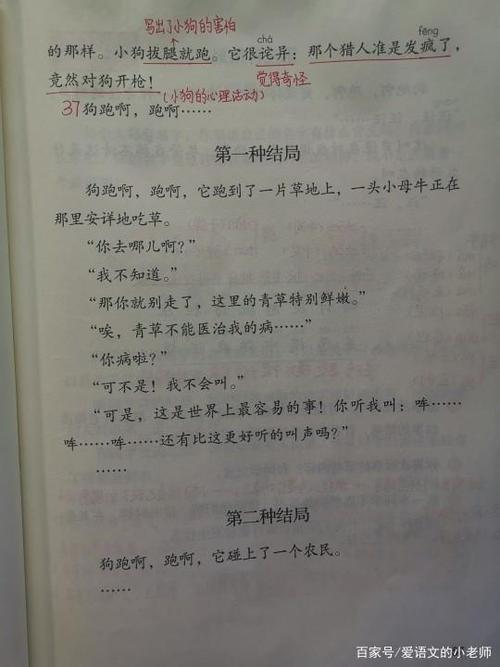 写出了小狗的害怕
chà
fēng
的那样。小狗拔腿就跑。它很诧异：那个猎人准是发疯了，
竟然对狗开枪！
觉得奇怪
(小狗的心理活动)
37狗跑啊，跑啊……
第一种结局
狗跑啊，跑啊，它跑到了一片草地上，一头小母牛正在
那里安详地吃草。
“你去哪儿啊？”
“我不知道。”
“那你就别走了，这里的青草特别鲜嫩。”
“唉，青草不能医治我的病……”
“你病啦？”
“可不是！我不会叫。”
“可是，这是世界上最容易的事！你听我叫：哞……
哞……哞……还有比这更好听的叫声吗？”
……
第二种结局
狗跑啊，跑啊，它碰上了一个农民。
……
百家号/爱语文的小老师